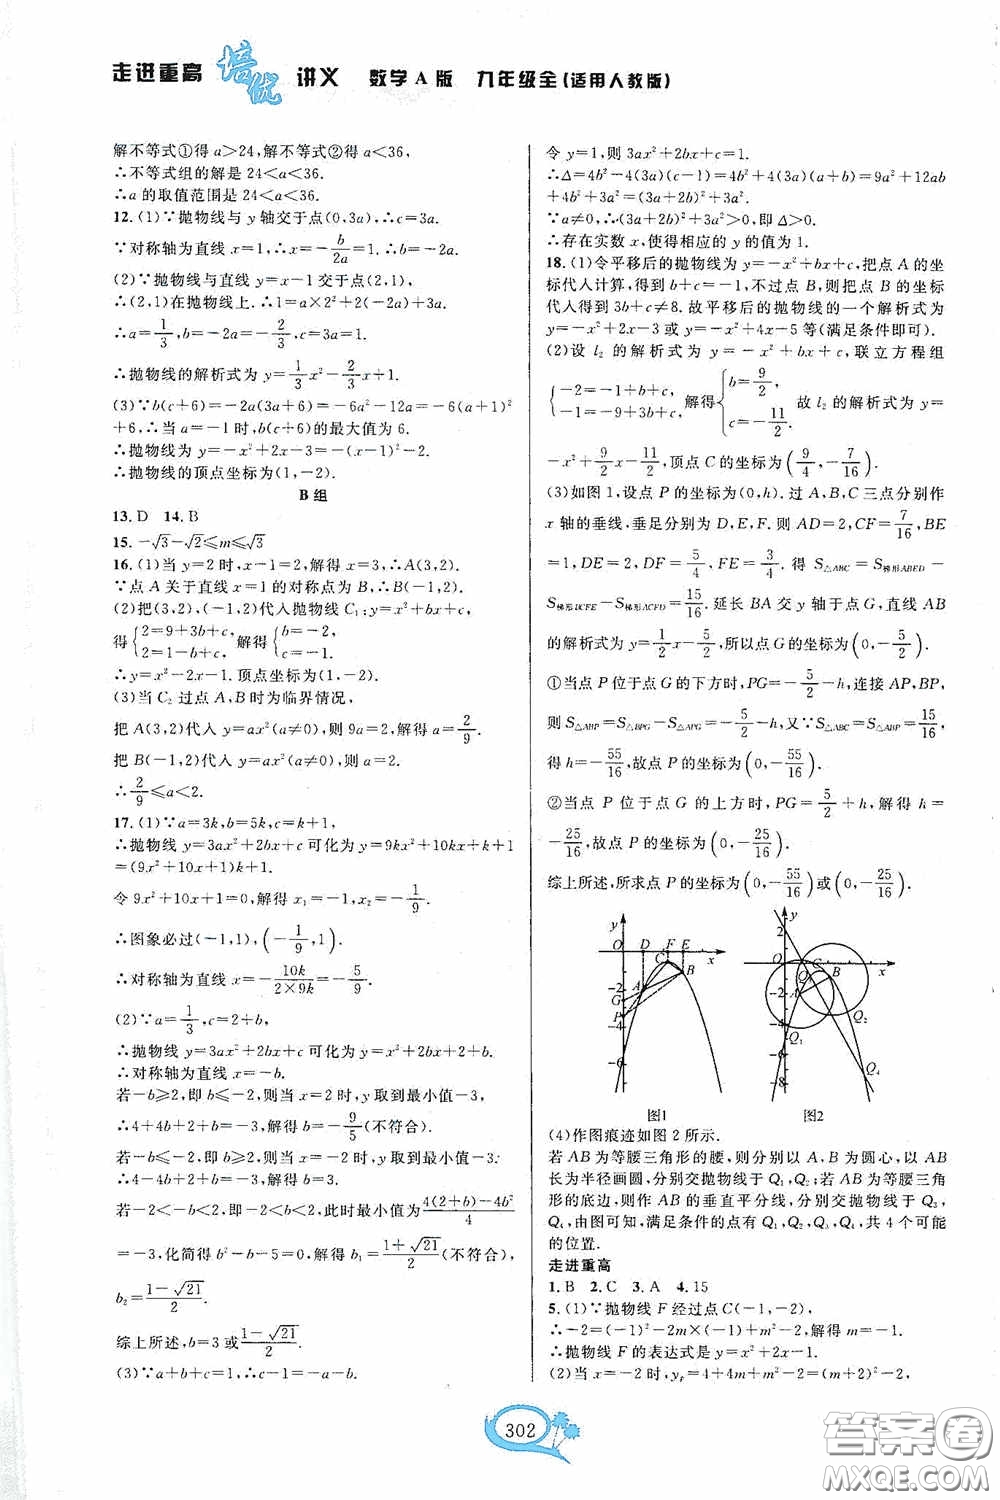 走进重高 培优 讲义 数学A版 九年级全(适用人教版)
解不等式①得 a>24,解不等式②得 a<36,
∴不等式组的解是 24<a<36.
∴a 的取值范围是 24<a<36.
12.(1)∵抛物线与 y 轴交于点(0,3a),∴c=3a.
∵对称轴为直线 x=1,∴x=-b/2a=1.∴b=-2a.
(2)∵抛物线与直线 y=x-1 交于点(2,1),
∴(2,1)在抛物线上.∴1=a×2²+2(-2a)+3a.
∴a=1/3,b=-2/3,c=1.
∴抛物线的解析式为 y=1/3x²-2/3x+1.
(3)∵b(c+6)=-2a(3a+6)=-6a²-12a=-6(a+1)²
+6,∴当 a=-1 时,b(c+6)的最大值为 6.
∴抛物线为 y=-x²+2x-3=-(x-1)²-2.
∴抛物线的顶点坐标为(1,-2).
B 组
13.D 14.B
15.-√3-√2≤m≤√3
16.(1)当 y=2 时,x-1=2,解得 x=3,∴A(3,2).
∵点 A 关于直线 x=1 的对称点为 B,∴B(-1,2).
(2)把(3,2),(-1,2)代入抛物线 C₁:y=x²+bx+c,
得{2=9+3b+c, 2=1-b+c, 解得{b=-2, c=-1.
∴y=x²-2x-1.顶点坐标为(1,-2).
(3)当 C₂ 过点 A、B 时为临界情况,
把 A(3,2)代入 y=ax²(a≠0),则 9a=2,解得 a=2/9.
把 B(-1,2)代入 y=ax²(a≠0),则 a=2.
∴2/9≤a<2.
17.(1)∵a=3k,b=5k,c=k+1,
∴抛物线 y=3ax²+2bx+c 可化为 y=9kx²+10kx+k+1
=(9x²+10x+1)k+1.
令 9x²+10x+1=0,解得 x₁=-1,x₂=-1/9.
∴图象必过(-1,1),(-1/9,1).
∴对称轴为直线 x=-10k/2×9k=-5/9.
(2)∵a=1/3,c=2+b,
∴抛物线 y=3ax²+2bx+c 可化为 y=x²+2bx+2+b.
∴对称轴为直线 x=-b.
若-b≥2,即 b≤-2,则当 x=2 时,y 取到最小值-3,
∴4+4b+2+b=-3,解得 b=-9/5(不符合).
若-b≤-2,即 b≥2,则当 x=-2 时,y 取到最小值-3,
∴4-4b+2+b=-3,解得 b=3.
若-2<-b<2,即-2<b<2,此时最小值为4(2+b)-4b²/4
=-3,化简得 b²-b-5=0,解得 b₁=1+√21/2(不符合),
b₂=1-√21/2.
综上所述,b=3 或1-√21/2.
(3)∵a+b+c=1,∴c-1=-a-b,
令 y=1,则 3ax²+2bx+c=1.
∴Δ=4b²-4(3a)(c-1)=4b²+4(3a)(a+b)=9a²+12ab
+4b²+3a²=(3a+2b)²+3a².
∵a≠0,∴(3a+2b)²+3a²>0,即 Δ>0.
∴存在实数 x,使得相应的 y 的值为 1.
18.(1)令平移后的抛物线为 y=-x²+bx+c,把点 A 的坐
标代入计算得 b+c=-1,不过点 B,则把点 B 的坐标
代入得到 3b+c≠8. 故平移后的抛物线的一个解析式为
y=-x²+2x-3 或 y=-x²+4x-5 等(满足条件即可).
(2)设 l₂ 的解析式为 y=-x²+bx+c,联立方程组
{-2=-1+b+c, -1=-9+3b+c, 解得{b=9/2, c=-11/2. 故 l₂ 的解析式为 y=
-x²+9/2x-11/2,顶点 C 的坐标为(9/4,-7/16).
(3)如图 1,设点 P 的坐标为(0,h). 过 A,B,C 三点分别作
x 轴的垂线,垂足分别为 D,E,F. 则 AD=2,CF=7/16,BE
=1,DE=2,DF=5/4,FE=3/4. 得 S△ABC=S梯形ABED-
S梯形BCFE-S梯形ACFD=15/16.延长 BA 交 y 轴于点 G,直线 AB
的解析式为 y=1/2x-5/2,所以点 G 的坐标为(0,-5/2).
①当点 P 位于点 G 的下方时,PG=-5/2-h,连接 AP,BP,
则 S△ABP=S△BPG-S△APG=-5/2-h,又∵S△ABC=S△ABP=15/16,
得 h=-55/16,故点 P 的坐标为(0,-55/16).
②当点 P 位于点 G 的上方时,PG=5/2+h,解得 h=
-25/16,故点 P 的坐标为(0,-25/16).
综上所述,所求点 P 的坐标为(0,-55/16)或(0,-25/16).
图1 图2
(4)作图痕迹如图 2 所示.
若 AB 为等腰三角形的腰,则分别以 A、B 为圆心,以 AB
长为半径画圆,分别交抛物线于 Q₁、Q₂;若 AB 为等腰三角
形的底边,则作 AB 的垂直平分线,分别交抛物线于 Q₃,
Q₄,由图可知,满足条件的点有 Q₁、Q₂、Q₃、Q₄,共 4 个可能
的位置.
走进重高
1.B 2.C 3.A 4.15
5.(1)∵抛物线 F 经过点 C(-1,-2),
∴-2=(-1)²-2m×(-1)+m²-2,解得 m=-1.
∴抛物线 F 的表达式是 y=x²+2x-1.
(2)当 x=-2 时,yF=4+4m+m²-2=(m+2)²-2,
302
答案圈
MXQE.COM